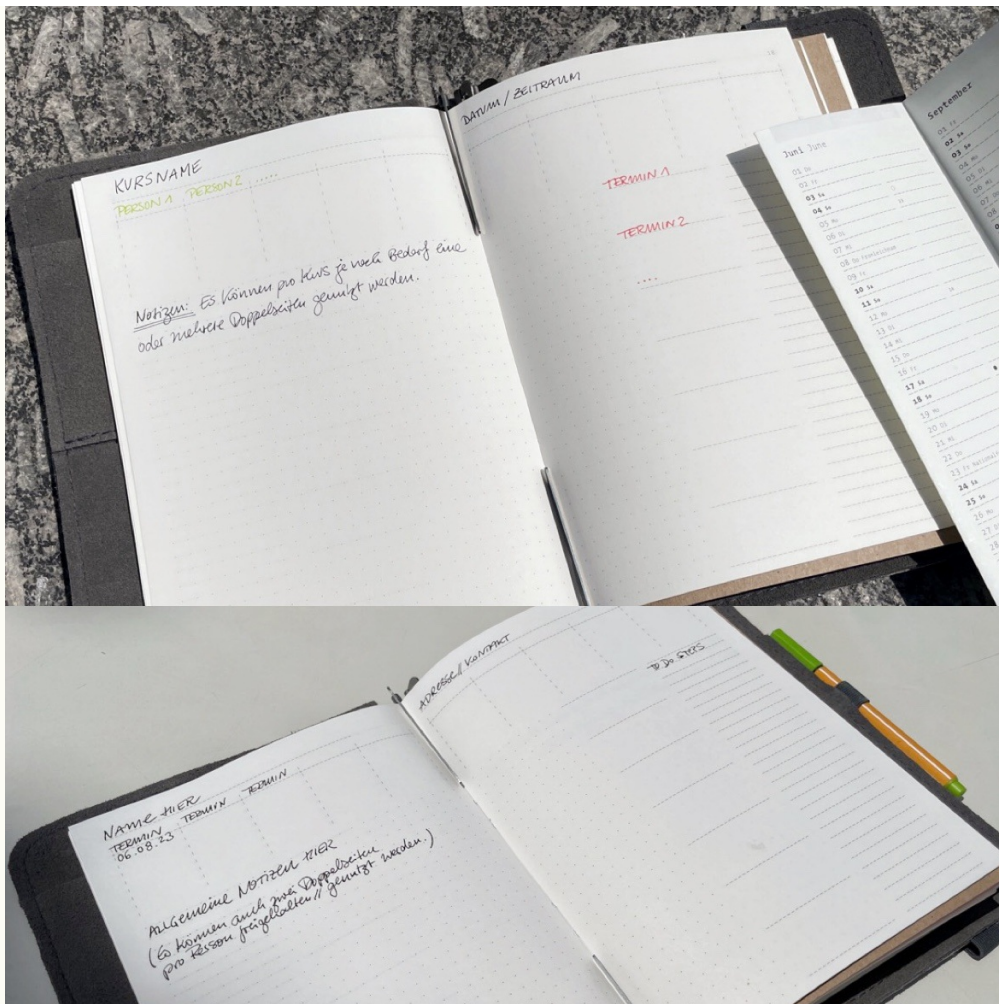 KURSNAME
PERSON 1 PERSON 2 .....
Notizen: Es können pro Kurs je nach Bedarf eine
oder mehrere Doppelseiten genutzt werden.
DATUM / ZEITRAUM
TERMIN 1
TERMIN 2
....
Juni June
01 Do
02 Fr
03 Sa
04 So
05 Mo
06 Di
07 Mi
08 Do Fronleichnam
09 Fr
10 Sa
11 So
12 Mo
13 Di
14 Mi
15 Do
16 Fr
17 Sa
18 So
19 Mo
20 Di
21 Mi
22 Do
23 Fr
24 Sa
25 So
26 Mo
27 Di
28
September
01 Fr
02 Sa
03 So
04 Mo
05 Di
06 Mi
07 Do
NAME HIER
TERMIN TERMIN TERMIN
06.08.23
ALLGEMEINE NOTIZEN HIER
(Es können auch zwei Doppelseiten
pro Person freigehalten // genutzt werden.)
ADRESSE // KONTAKT
TO DO STEPS